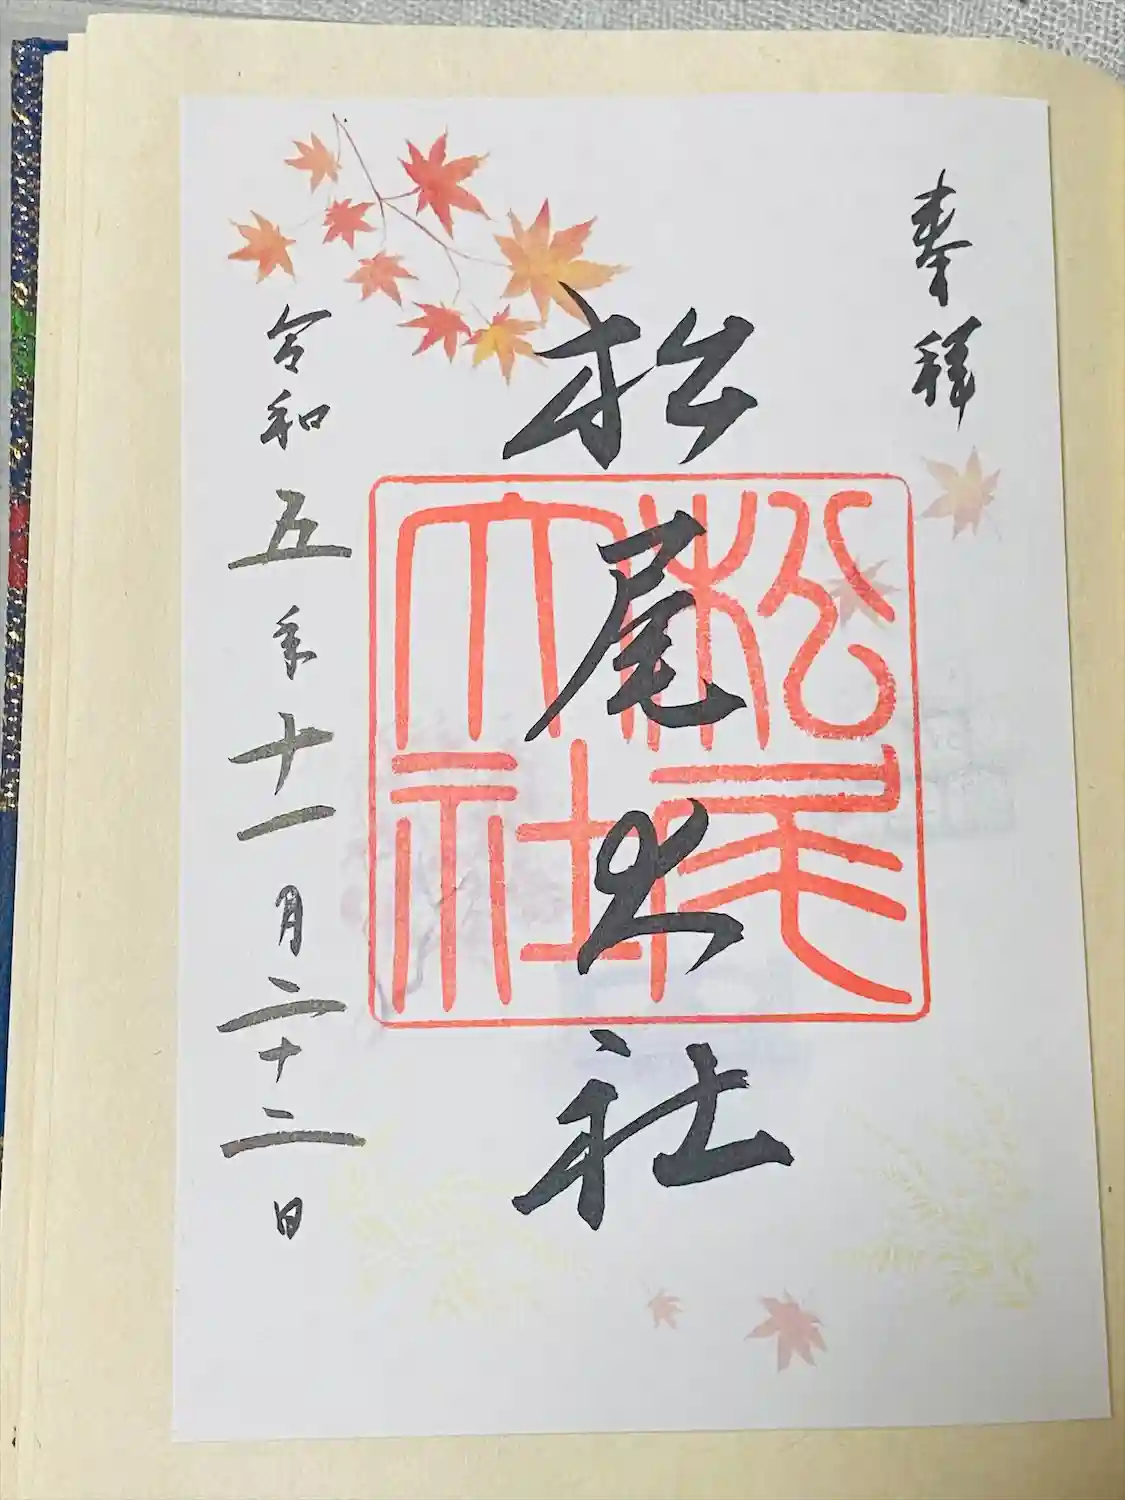 奉拝
松尾大社
松尾大社
令和五年十一月二十二日